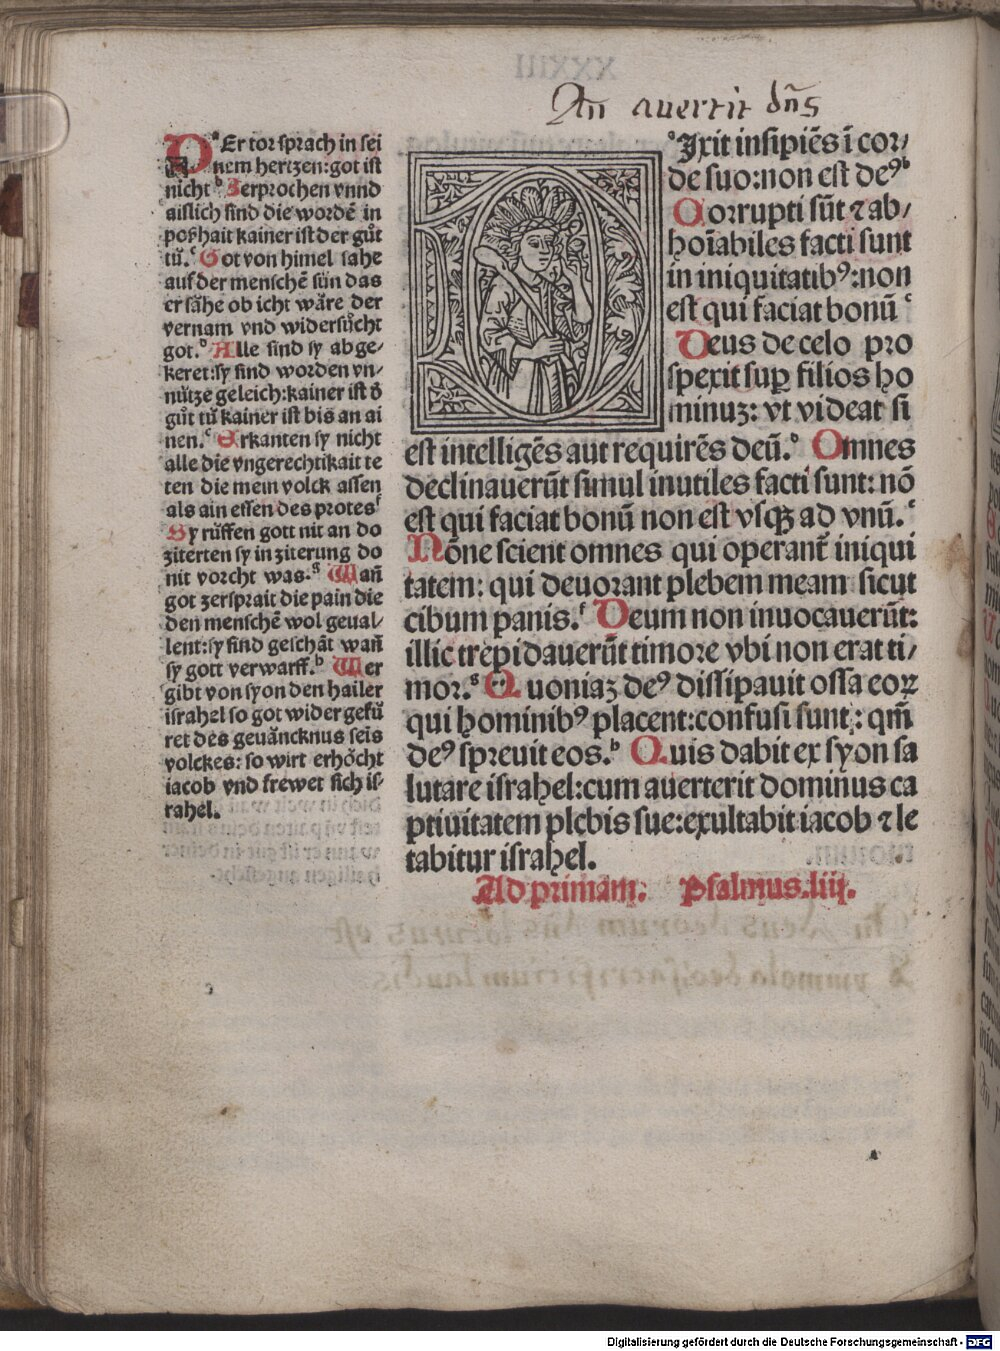 An auertit dn̄s
DEr tor sprach in sei
nem hertzen: got ist
nicht b Zerprochen vnnd
aislich sind die wordē in
poßhait kainer ist der gůt
tů. c Got von himel sahe
auf der menschē sün das
er sähe ob icht wäre der
vernam vnd widersůcht
got. d Alle sind sy abge-
keret: sy sind worden vn/
nütze geleich: kainer ist d̄
gůt tů kainer ist bis an ai
nen. e Erkanten sy nicht
alle die vngerechtikait te
ten die mein volck assen
als ain essen des protes f
Sy růfften gott nit an do
ziterten sy in ziterung do
nit vorcht was. g Wañ
got zersprait die pain die
den menschē wol geual/
lent: sy sind geschāt wañ
sy gott verwarff. h Wer
gibt von syon den hailer
israhel so got wider gekü
ret des geuäncknus seīs
volckes: so wirt erhöcht
iacob vnd frewet sich is-
rahel.
a Jxit insipiēs ī cor/
de suo: non est deꝰ b
Corrupti sūt ⁊ ab/
hoīabiles facti sunt
in iniquitatibꝰ: non
est qui faciat bonū c
Deus de celo pro
spexit suꝑ filios ho
minuꝫ: vt videat si
est intelligēs aut requirēs deū. d Omnes
declinauerūt simul inutiles facti sunt: nō
est qui faciat bonū non est vsqꝫ ad vnū. e
Nōne scient omnes qui operant̄ iniqui
tatem: qui deuorant plebem meam sicut
cibum panis. f Deum non inuocauerūt:
illic trepidauerūt timore vbi non erat ti/
mor. g Quoniaꝫ deꝰ dissipauit ossa eoꝝ
qui hominibꝰ placent: confusi sunt: qm̄
deꝰ spreuit eos. h Quis dabit ex syon sa
lutare israhel: cum auerterit dominus ca
ptiuitatem plebis sue: exultabit iacob ⁊ le
tabitur israhel.
Ad primam. Psalmus.liij.
Digitalisierung gefördert durch die Deutsche Forschungsgemeinschaft - DFG